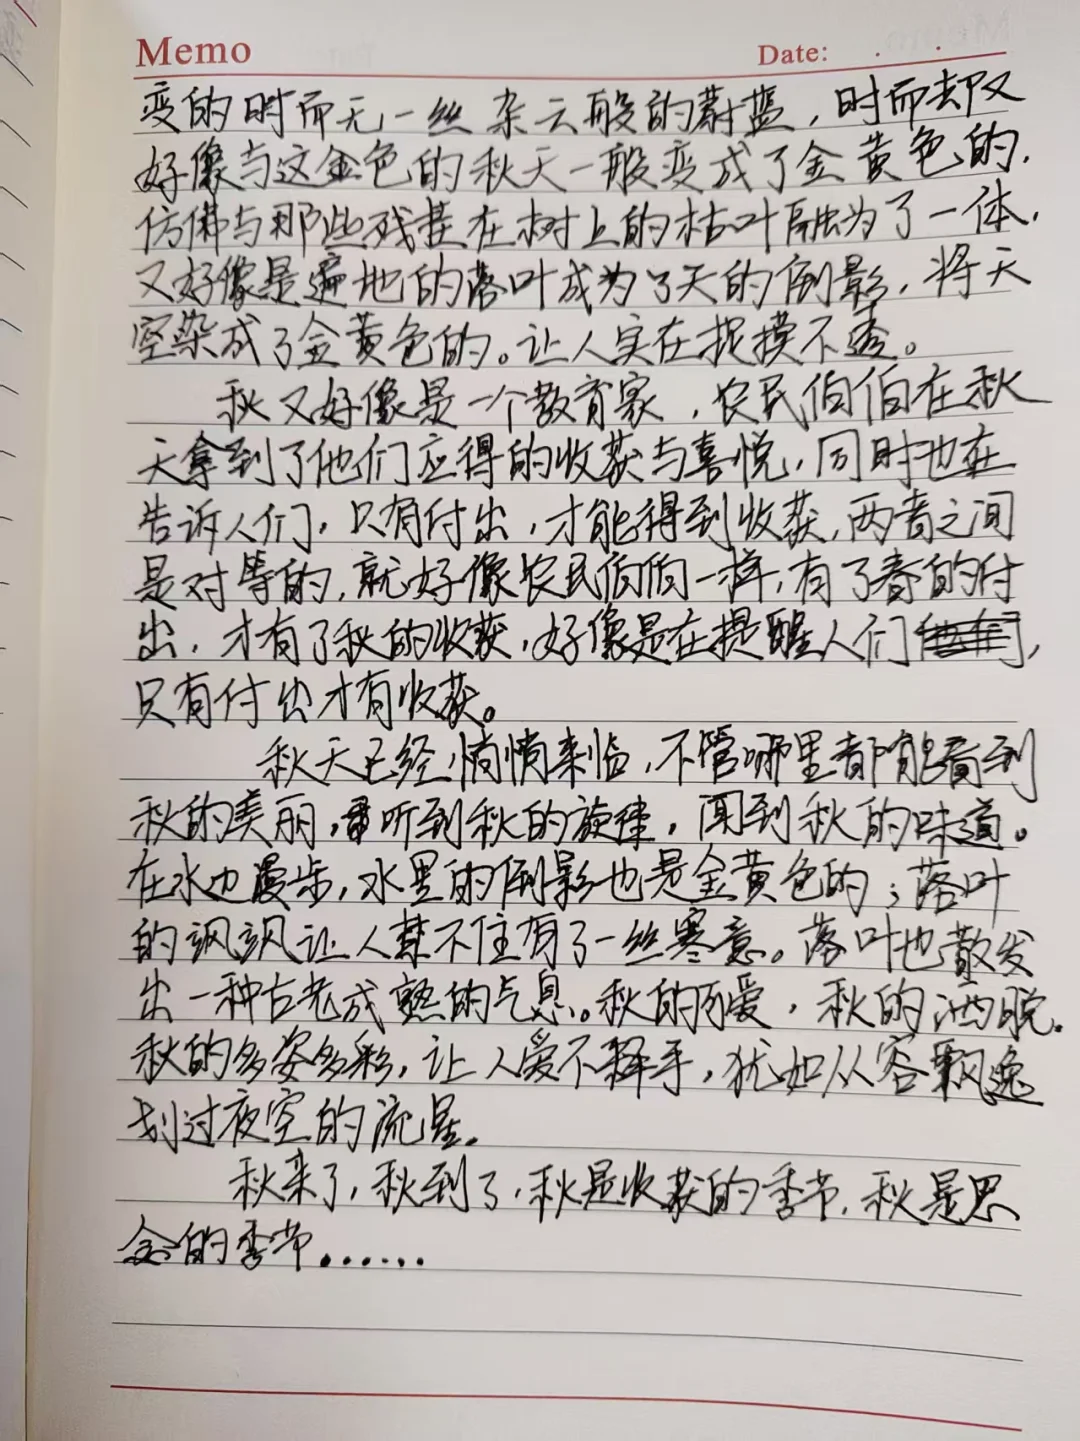 Memo Date: . .
变的时而无一丝杂云般的蔚蓝，时而却又
好像与这金色的秋天一般变成了金黄色的，
仿佛与那些残挂在树上的枯叶融为了一体，
又好像是遍地的落叶成为了天的倒影，将天
空染成了金黄色的。让人实在捉摸不透。
秋又好像是一个教育家，农民伯伯在秋
天拿到了他们应得的收获与喜悦，同时也在
告诉人们，只有付出，才能得到收获，两者之间
是对等的，就好像农民伯伯一样，有了春的付
出，才有了秋的收获，好像是在提醒人们，
只有付出才有收获。
秋天已经悄悄来临，不管哪里都能看到
秋的美丽，听到秋的旋律，闻到秋的味道。
在水边漫步，水里的倒影也是金黄色的；落叶
的飒飒让人禁不住有了一丝寒意。落叶也散发
出一种古老成熟的气息。秋的可爱，秋的洒脱。
秋的多姿多彩，让人爱不释手，犹如从容飘逸
划过夜空的流星。
秋来了，秋到了，秋是收获的季节，秋是思
念的季节......